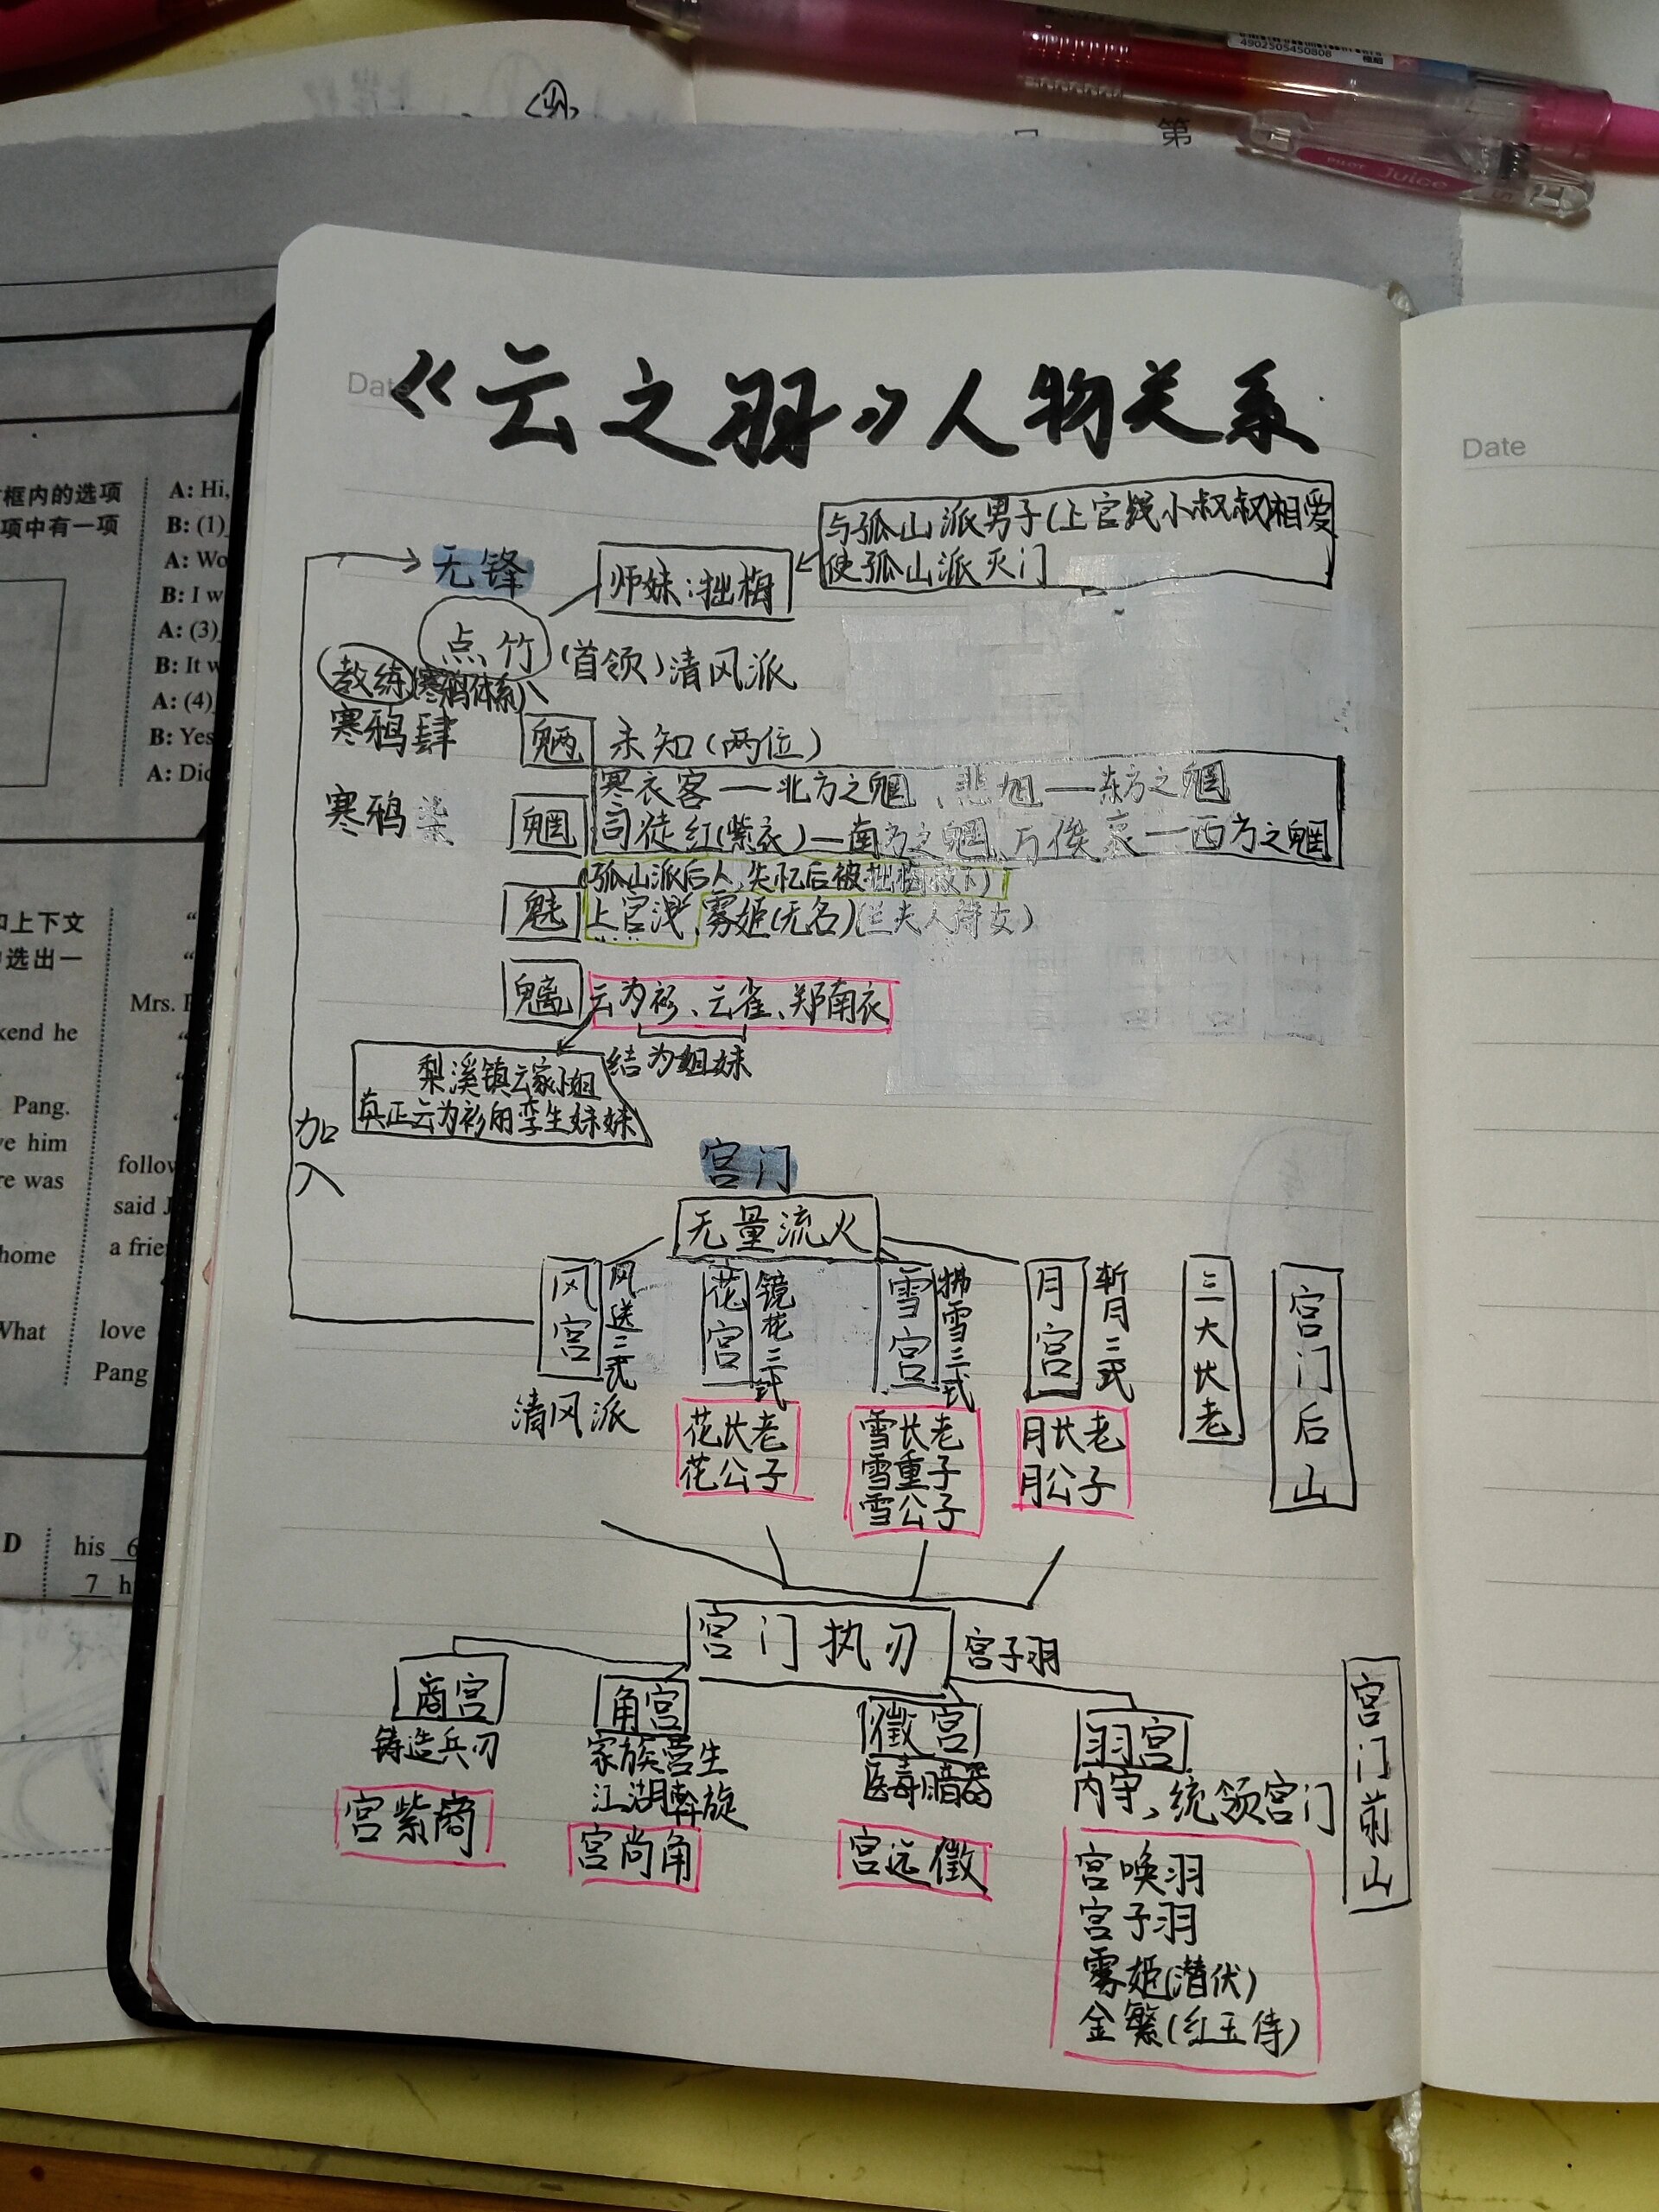 4902505450808
PILOT Juice
第
Date
《云之羽》人物关系
Date
与孤山派男子(上官浅小叔叔)相爱
使孤山派灭门
无锋
师妹:拙梅
点竹
(首领)清风派
教练(寒鸦体系)
寒鸦肆
寒鸦柒
魉 未知(两位)
魍
寒衣客—北方之魍、悲旭—东方之魍
司徒红(紫衣)—南方之魍、万俟哀—西方之魍
(孤山派后人,失忆后被拙梅救下)
魅 上官浅、雾姬(无名)(兰夫人侍女)
魑 云为衫、云雀、郑南衣
结为姐妹
梨溪镇云家小姐
真正云为衫的孪生妹妹
加入
宫门
无量流火
风宫
风送三式
清风派
花宫
镜花三式
花长老
花公子
雪宫
拂雪三式
雪长老
雪重子
雪公子
月宫
斩月三式
月长老
月公子
三大长老
宫门后山
宫门执刃 宫子羽
商宫
铸造兵刃
宫紫商
角宫
家族营生
江湖斡旋
宫尚角
徵宫
医毒暗器
宫远徵
羽宫
内守、统领宫门
宫唤羽
宫子羽
雾姬(潜伏)
金繁(红玉侍)
宫门前山
框内的选项
项中有一项
A: Hi,
B: (1)
A: Wo
B: I w
A: (3)
B: It w
A: (4)
B: Yes
A: Dic
和上下文
选出一
Mrs.
kend he
Pang.
ve him
re was
follow
said
a frie
home
What
love
Pang
D
his 6
7 h